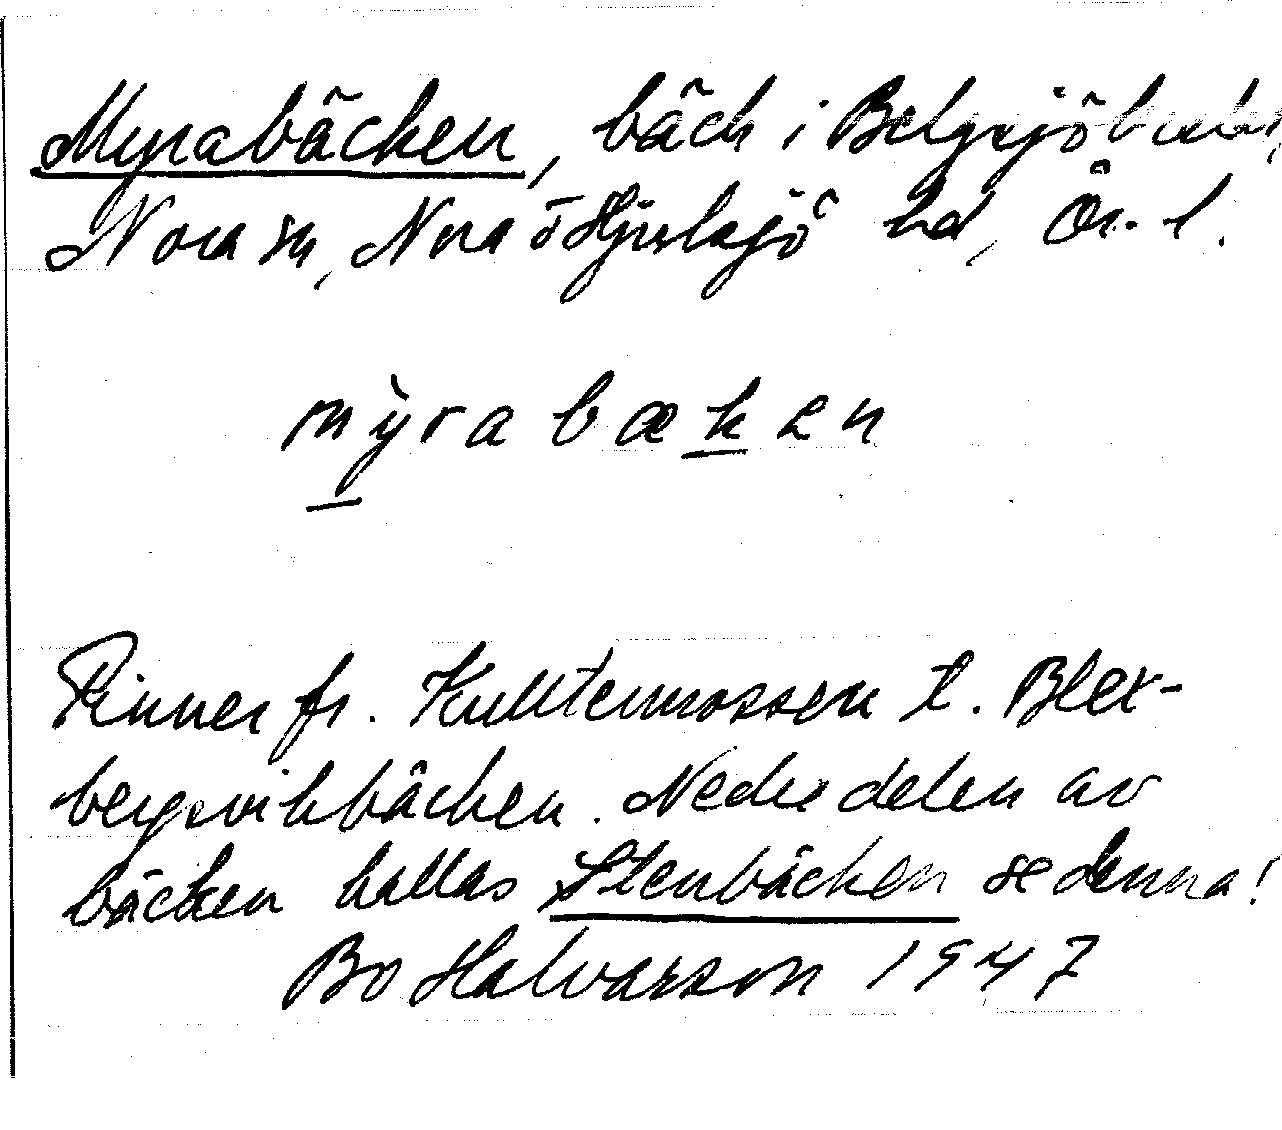 Myrabäcken, bäck i
Nora sn, Nora o Hjulsjö hd, Ör. l.
mỳrabækɛn
Rinner fr. Kulltenmossen t. Blex-
bergsvikbäcken. Nedre delen av
bäcken kallas Stenbäcken se denna!
Bo Halvarsson 1947